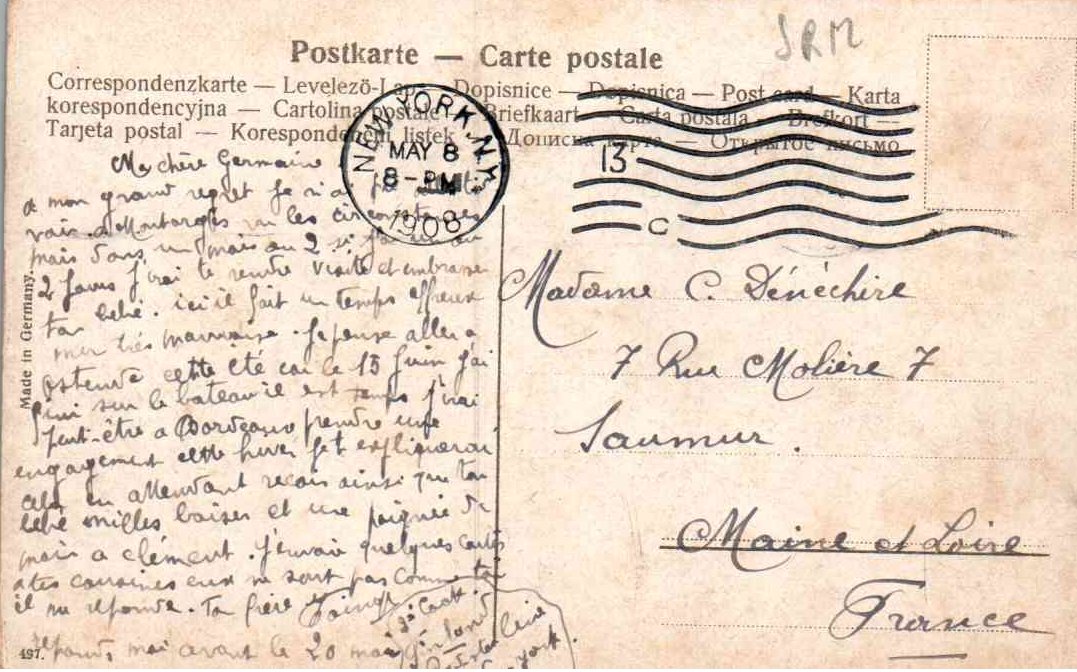 SRM
Postkarte — Carte postale
Correspondenzkarte — Levelező-Lap — Dopisnice — Dopisnica — Post card — Karta
korespondencyjna — Cartolina postale — Briefkaart — Carta postala — Brefkort —
Tarjeta postal — Korespondenční listek — Дописна карта — Открытое письмо
NEW YORK, N.Y.
MAY 8
8-PM
1908
13
C
Ma chère Germaine
a mon grand regret je n'ai pu
voir a Montargis vu les circonstances
mais dans un mois ou 2 si j'ai un ou
2 jours j'irai te rendre visite et embrasser
ton bébé. ici il fait un temps affreux
mer très mauvaise. Je pense aller a
ostende cette été car le 15 juin j'ai
fini sur le bateau il est temps j'irai
peut-être a Bordeaux prendre une
engagement cette hiver je t expliquerai
cela en attendant recois ainsi que ton
bébé milles baisers et une poignée de
main a clément. J'envoie quelques cartes
a tes cousines eux ne sont pas comme toi
il me réponde. Ton frère
réponds moi avant le 20 mai
Made in Germany.
497.
Madame C. Dénéchère
7 Rue Molière 7
Saumur.
Maine et Loire
France